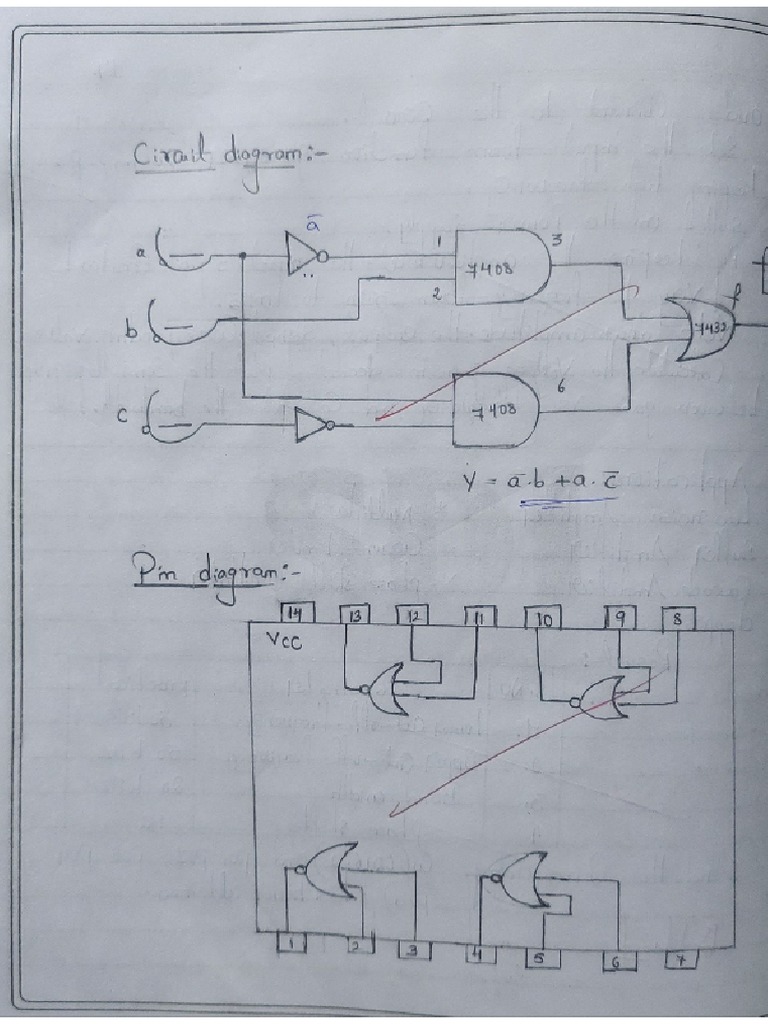 Circuit diagram:-
ā
a
1
7408
3
2
b
f
7432
6
C
7408
Y = ā.b + a. c̄
Pin diagram:-
14 13 12 11 10 9 8
VCC
1 2 3 4 5 6 7